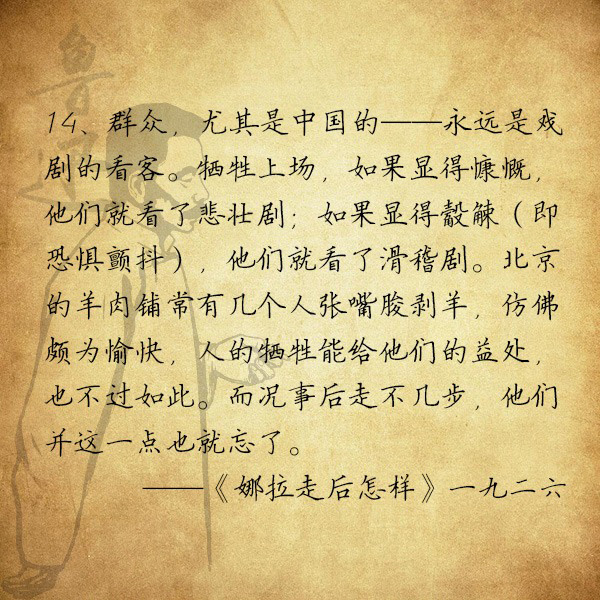 鲁迅
14、群众，尤其是中国的——永远是戏
剧的看客。牺牲上场，如果显得慷慨，
他们就看了悲壮剧；如果显得觳觫（即
恐惧颤抖），他们就看了滑稽剧。北京
的羊肉铺常有几个人张嘴剥羊，仿佛
颇为愉快，人的牺牲能给他们的益处，
也不过如此。而况事后走不几步，他们
并这一点也就忘了。
——《娜拉走后怎样》一九二六